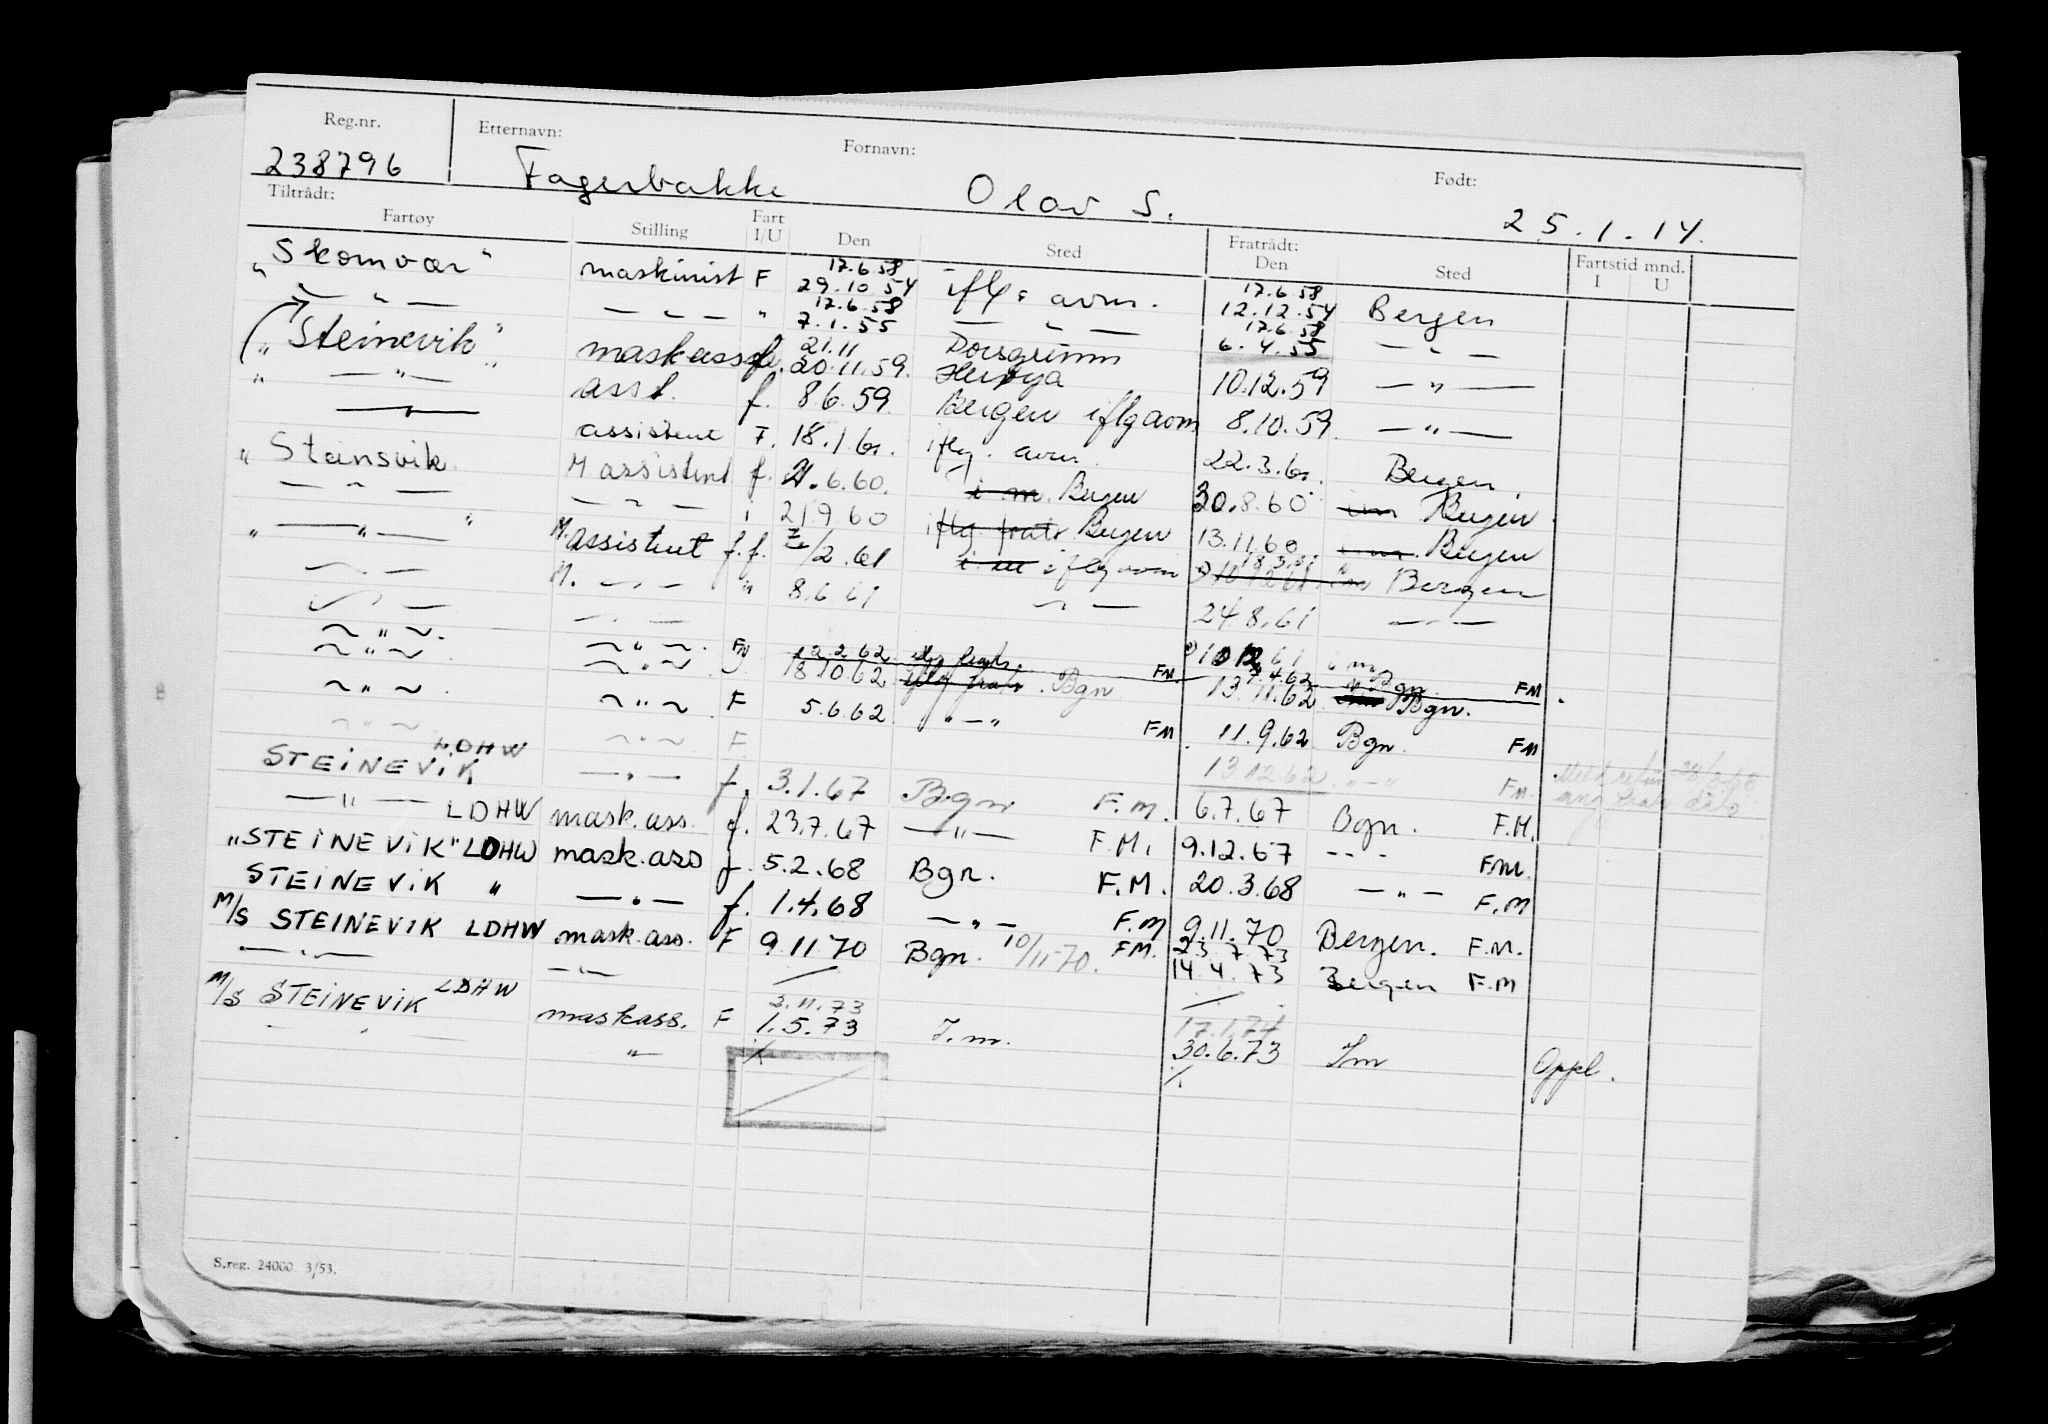 Reg.nr. Etternavn: Fornavn: Født:
238796 Fagerbakke Olav S. 25.1.14.
Tiltrådt: Fratrådt:
Fartøy Stilling Fart I/U Den Sted Den Sted Fartstid mnd. I U
17.6.58 17.6.58
"Skomvær" maskinist F 29.10.54 iflg. avm. 12.12.54 Bergen
17.6.58 17.6.58
— " — — " — " 7.1.55 — " — 6.4.55 — " —
21.11
"Steinevik" mask ass 20.11.59. Herøya 10.12.59 — " —
" — " — " asst. f. 8.6.59. Bergen iflg avm 8.10.59. — " —
— " — assistent F. 18.1.60. iflg. avm. 22.3.60. Bergen.
"Steinsvik M assistent f. 21.6.60. i m. Bergen 30.8.60 i m Bergen.
— " — — " — 21.9.60 iflg. fratr. Bergen 13.11.60 i m. Bergen
" — " — " M. assistent f.f. /2.61 i m iflg avm 18.3.61 Bergen
— " — M. — " — " 8.6.61 — " — 24.8.61 — " —
~ " ~. ~ " ~. FN 12.2.62 iflg fratr. FM 7.4.62 Bgn. FM
~ " ~ ~ " ~ 18.10.62 iflg fratr. Bgn 13.11.62 Bgn.
~ " ~. ~ " ~. F 5.6.62 " — " FM 11.9.62 Bgn. FM
~ " ~ ~ " ~ F 13.12.62. " — " FM.
STEINEVIK LDHW — " — f. 3.1.67 Bgn F.M. 6.7.67 Bgn. F.M.
— " — LDHW mask.ass. f. 23.7.67 — " — F.M. 9.12.67 — " — F.M.
"STEINEVIK" LDHW mask.ass f. 5.2.68 Bgn. F.M. 20.3.68 — " — F.M
STEINEVIK " — " — f. 1.4.68 — " — F.M 9.11.70 Bergen. F.M.
M/S STEINEVIK LDHW mask.ass. F 9.11.70 Bgn. 10/11-70. FM. 23.7.73
— " — — " — 14.4.73 Bergen F.M
3.11.73 17.1.74
M/S STEINEVIK LDHW maskass. F 1.5.73 I.m. 30.6.73 Im Oppl.
— " — "
S.reg. 24000 3/53.